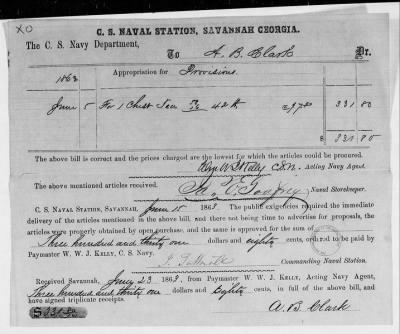 XO
C. S. NAVAL STATION, SAVANNAH GEORGIA.
The C. S. Navy Department,
To A. B. Clark Dr.
1863 Appropriation for Provisions.
June 5 For 1 Chest Tea 42 lb 331 80
$ 331 80
The above bill is correct and the prices charged are the lowest for which the articles could be procured.
CSN. Acting Navy Agent.
The above mentioned articles received.
Naval Storekeeper.
C. S. NAVAL STATION, SAVANNAH, June 15 1863. The public exigencies required the immediate
delivery of the articles mentioned in the above bill, and there not being time to advertise for proposals, the articles
were properly obtained by open purchase, and the same is approved for the sum of
Three hundred and thirty one dollars and eighty cents, ordered to be paid by
Paymaster W. W. J. KELLY, C. S. NAVY.
Commanding Naval Station.
Received Savannah, June 23 1863, from Paymaster W. W. J. KELLY, Acting Navy Agent,
Three hundred and thirty one dollars and Eighty cents, in full of the above bill, and
have signed triplicate receipts.
$ 331.80 A. B. Clark